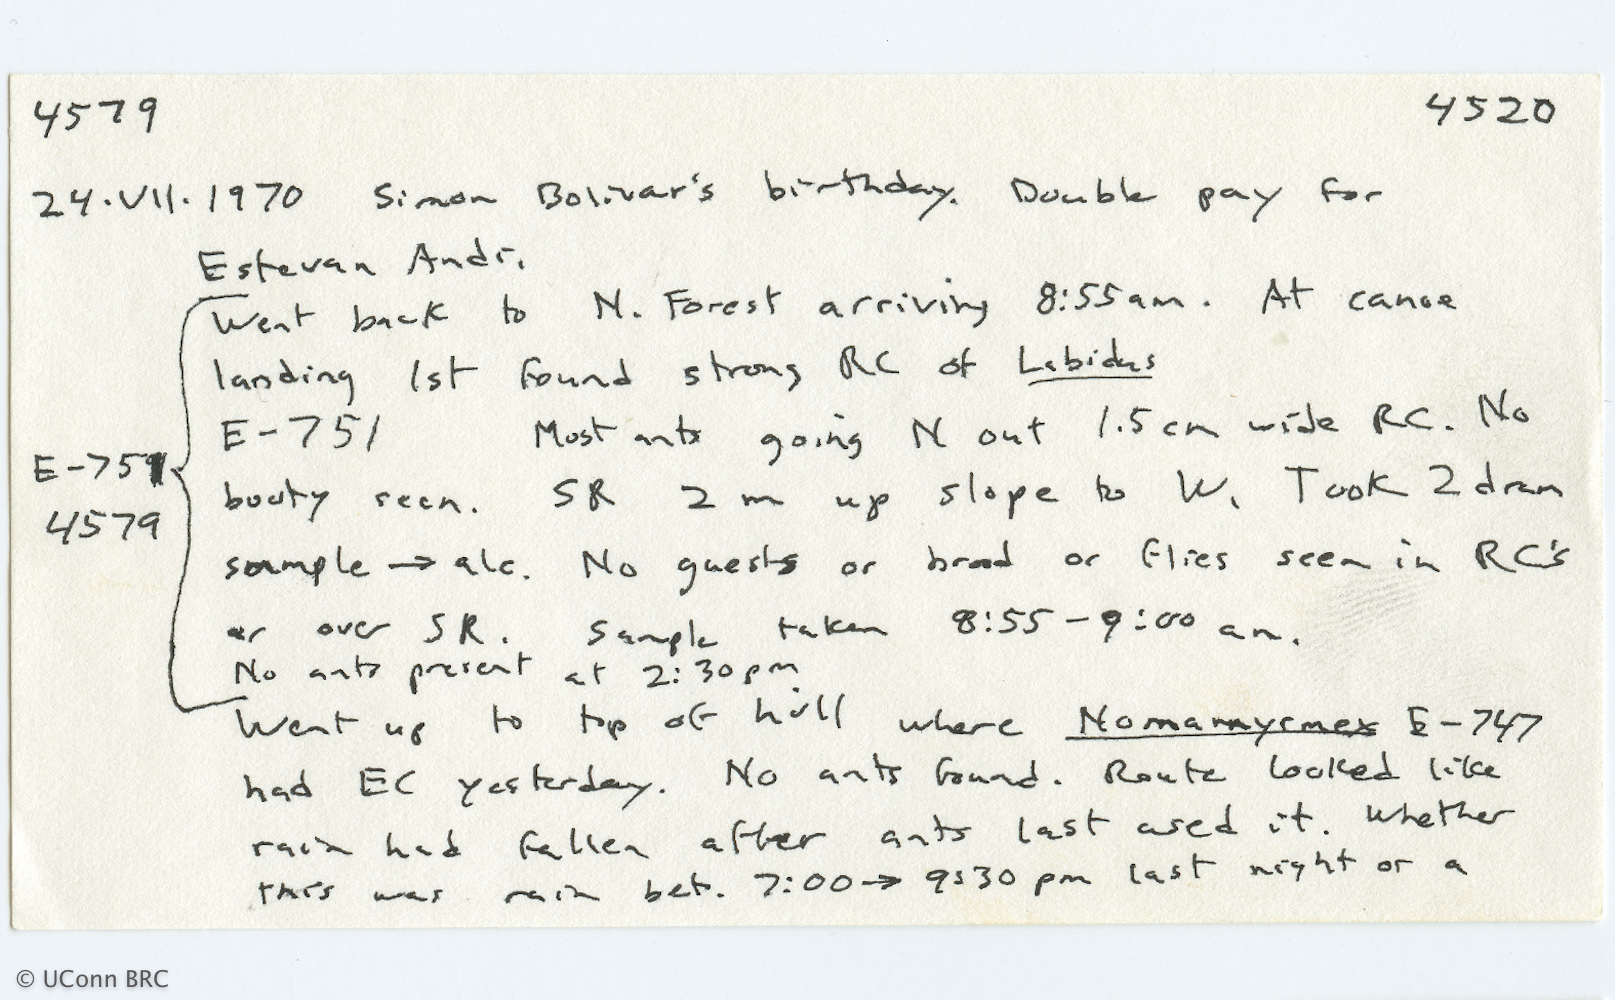 4579 4520
24.VII.1970 Simon Bolivar's birthday. Double pay for
Estevan Andr.
Went back to N. Forest arriving 8:55 am. At canoe
landing 1st found strong RC of Labidus
E-751 Most ants going N out 1.5 cm wide RC. No
E-751
booty seen. SR 2 m up slope to W. Took 2 dram
4579
sample → alc. No guests or brood or flies seen in RC's
or over SR. Sample taken 8:55 - 9:00 am.
No ants present at 2:30 pm
Went up to top of hill where Nomamyrmex E-747
had EC yesterday. No ants found. Route looked like
rain had fallen after ants last used it. Whether
this was rain bet. 7:00 → 9:30 pm last night or a
© UConn BRC